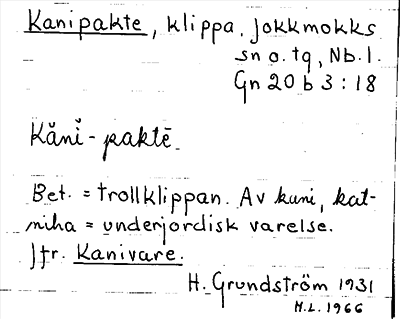 Kanipakte, klippa, Jokkmokks
sn o. tg, Nb. l.
Gn 20 b 3 : 18
Kănĭ - paktē
Bet. = trollklippan. Av kuni, kat-
niha = underjordisk varelse.
Jfr. Kanivare.
H. Grundström 1931
H.L. 1966